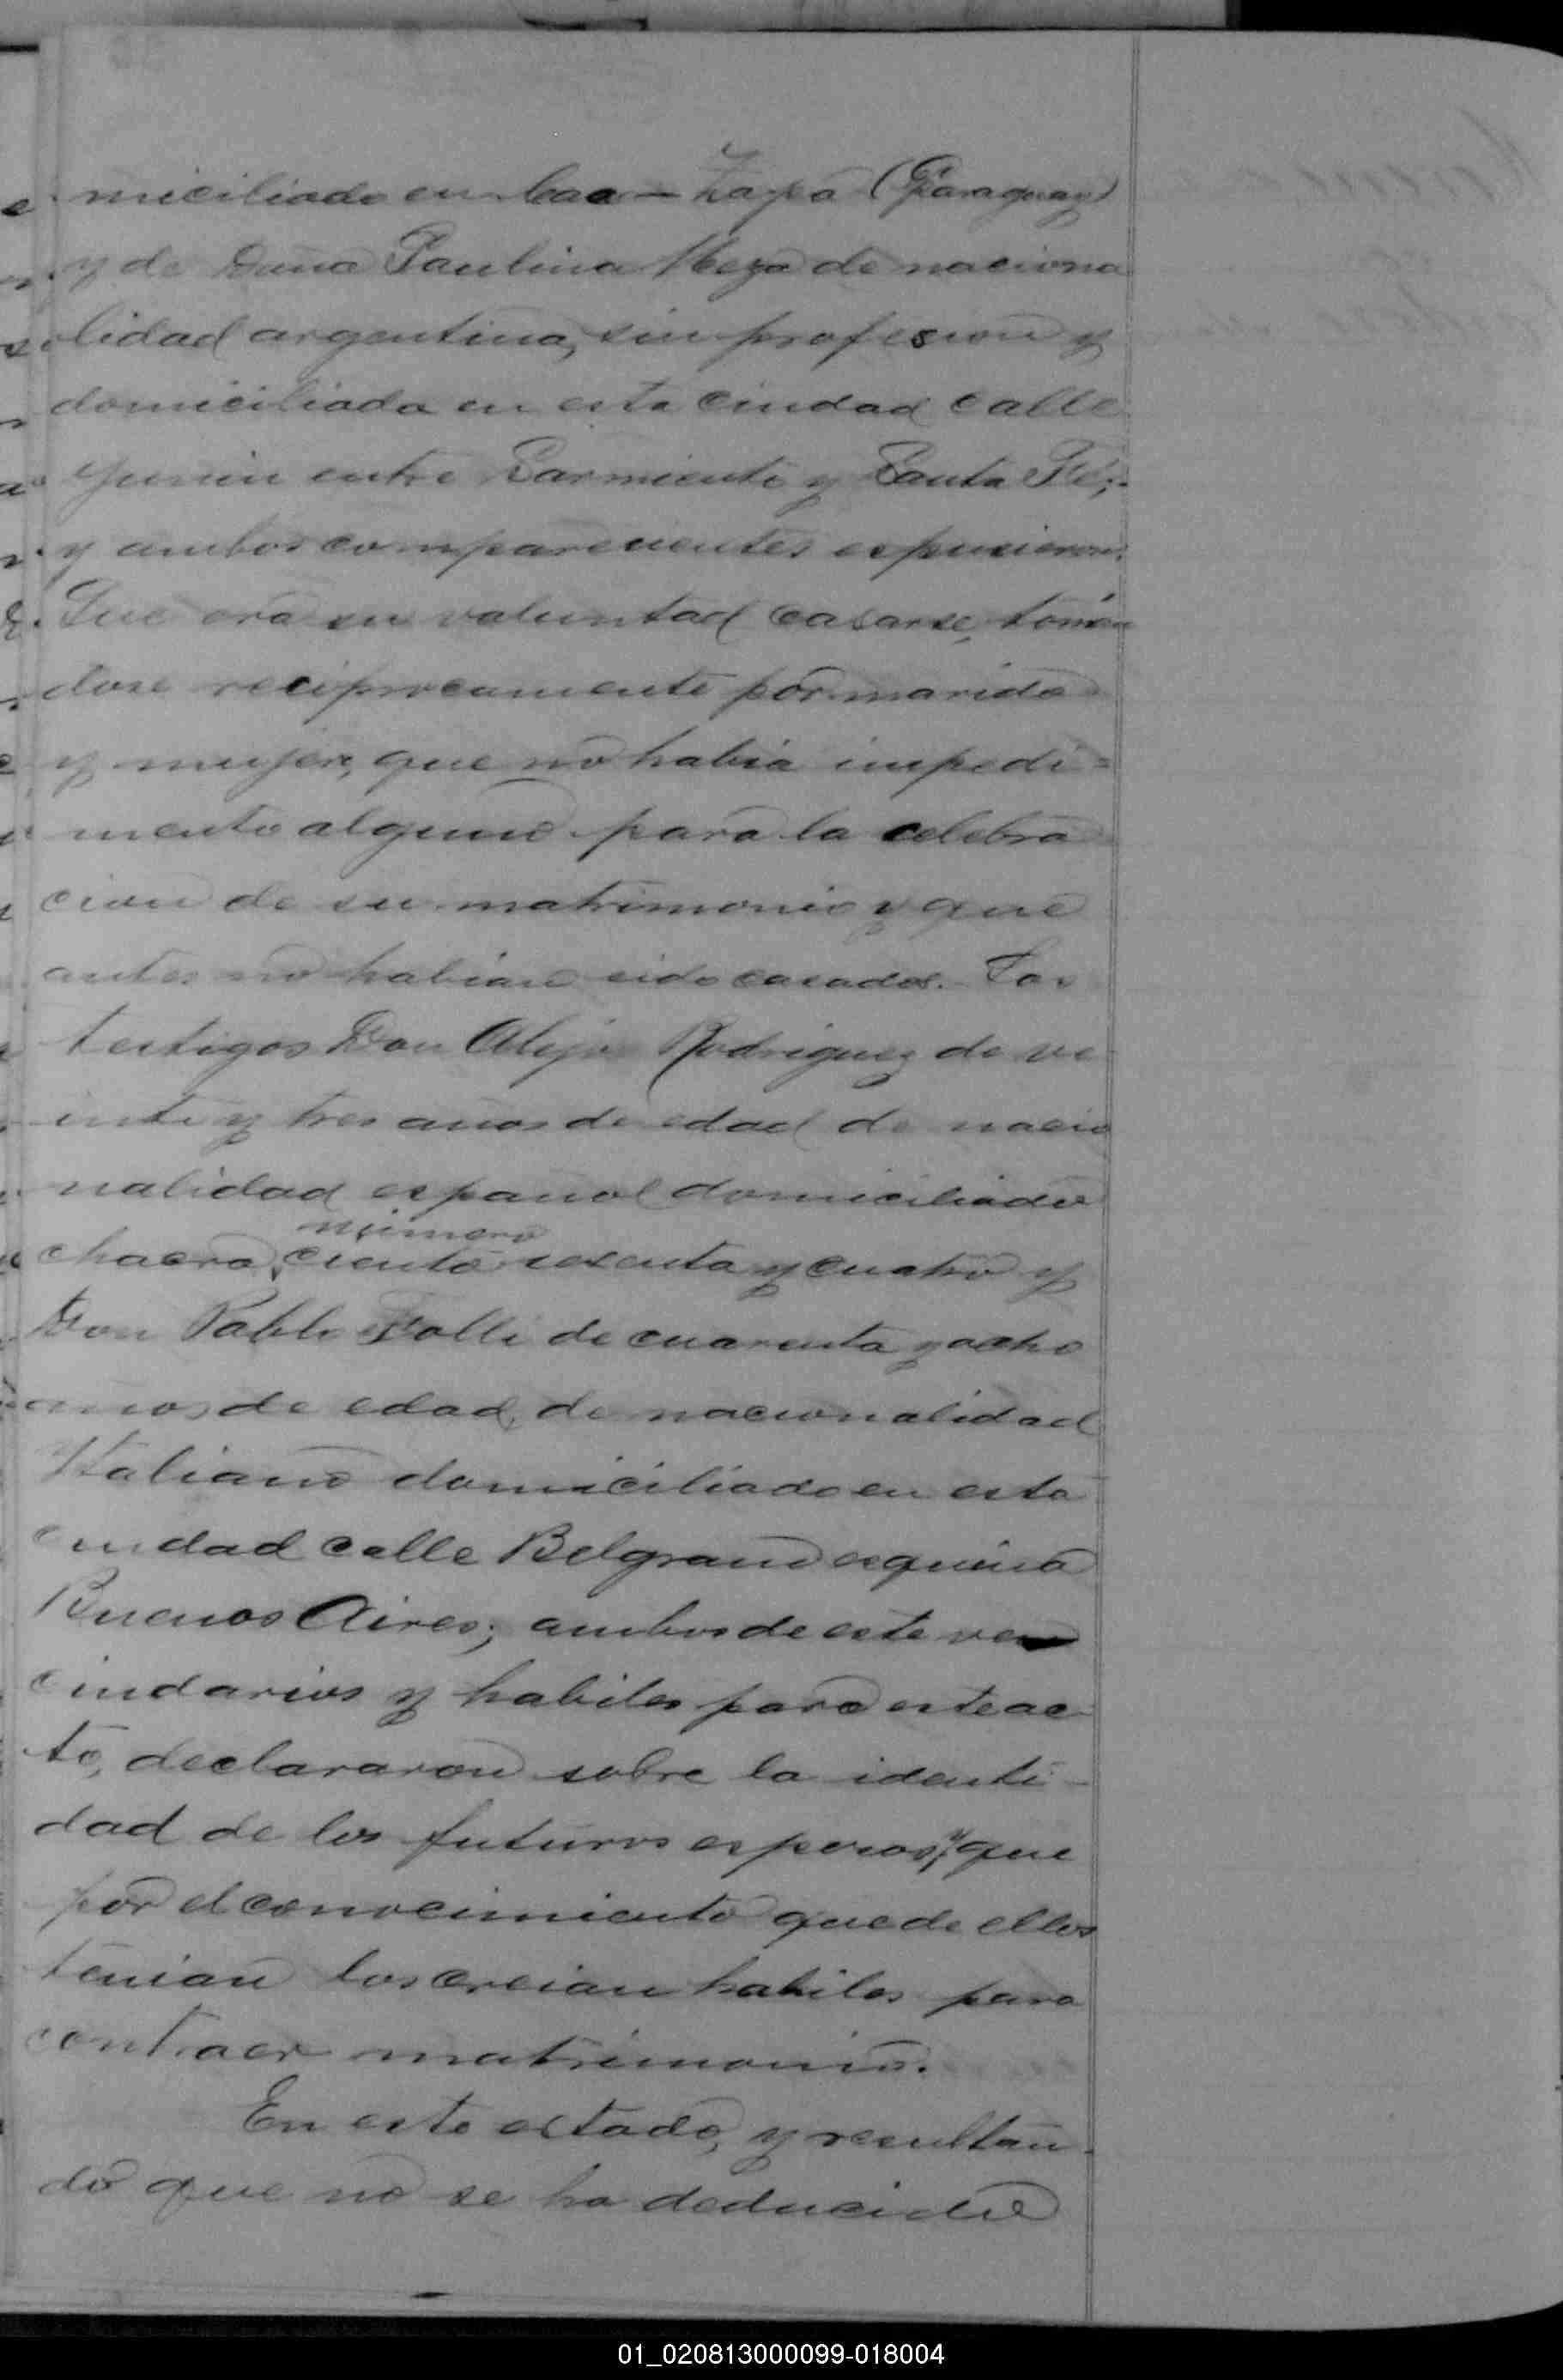 miciliado en Caa-Zapá (Paraguay)
y de Doña Paulina Meza de naciona
lidad argentina, sin profesion y
domiciliada en esta ciudad calle
Junin entre Sarmiento y Santa Fé;
y ambos comparecientes espusieron:
Que era su voluntad casarse, tomán
dose reciprocamente por marido
y mujer, que no habia impedi=
mento alguno para la celebra
cion de su matrimonio y que
antes no habian sido casados. Los
testigos Don Alejo Rodriguez de ve
inte y tres años de edad de nacio
nalidad español domiciliado
número
chacra ciento sesenta y cuatro y
Don Pablo Folli de cuarenta y ocho
años de edad, de nacionalidad
Italiano domiciliado en esta
ciudad calle Belgrano esquina
Buenos Aires; ambos de este ve
cindarios y habiles para este ac
to, declararon sobre la identi-
dad de los futuros esposos, y que
por el conocimiento que de ellos
tenian los creian habiles para
contraer matrimonio.
En este estado, y resultan
do que no se ha deducido
01_020813000099-018004